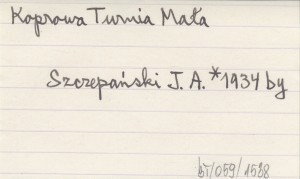 Koprowa Turnia Mała
Szczepański J. A. *1934 by
bT/059/1588